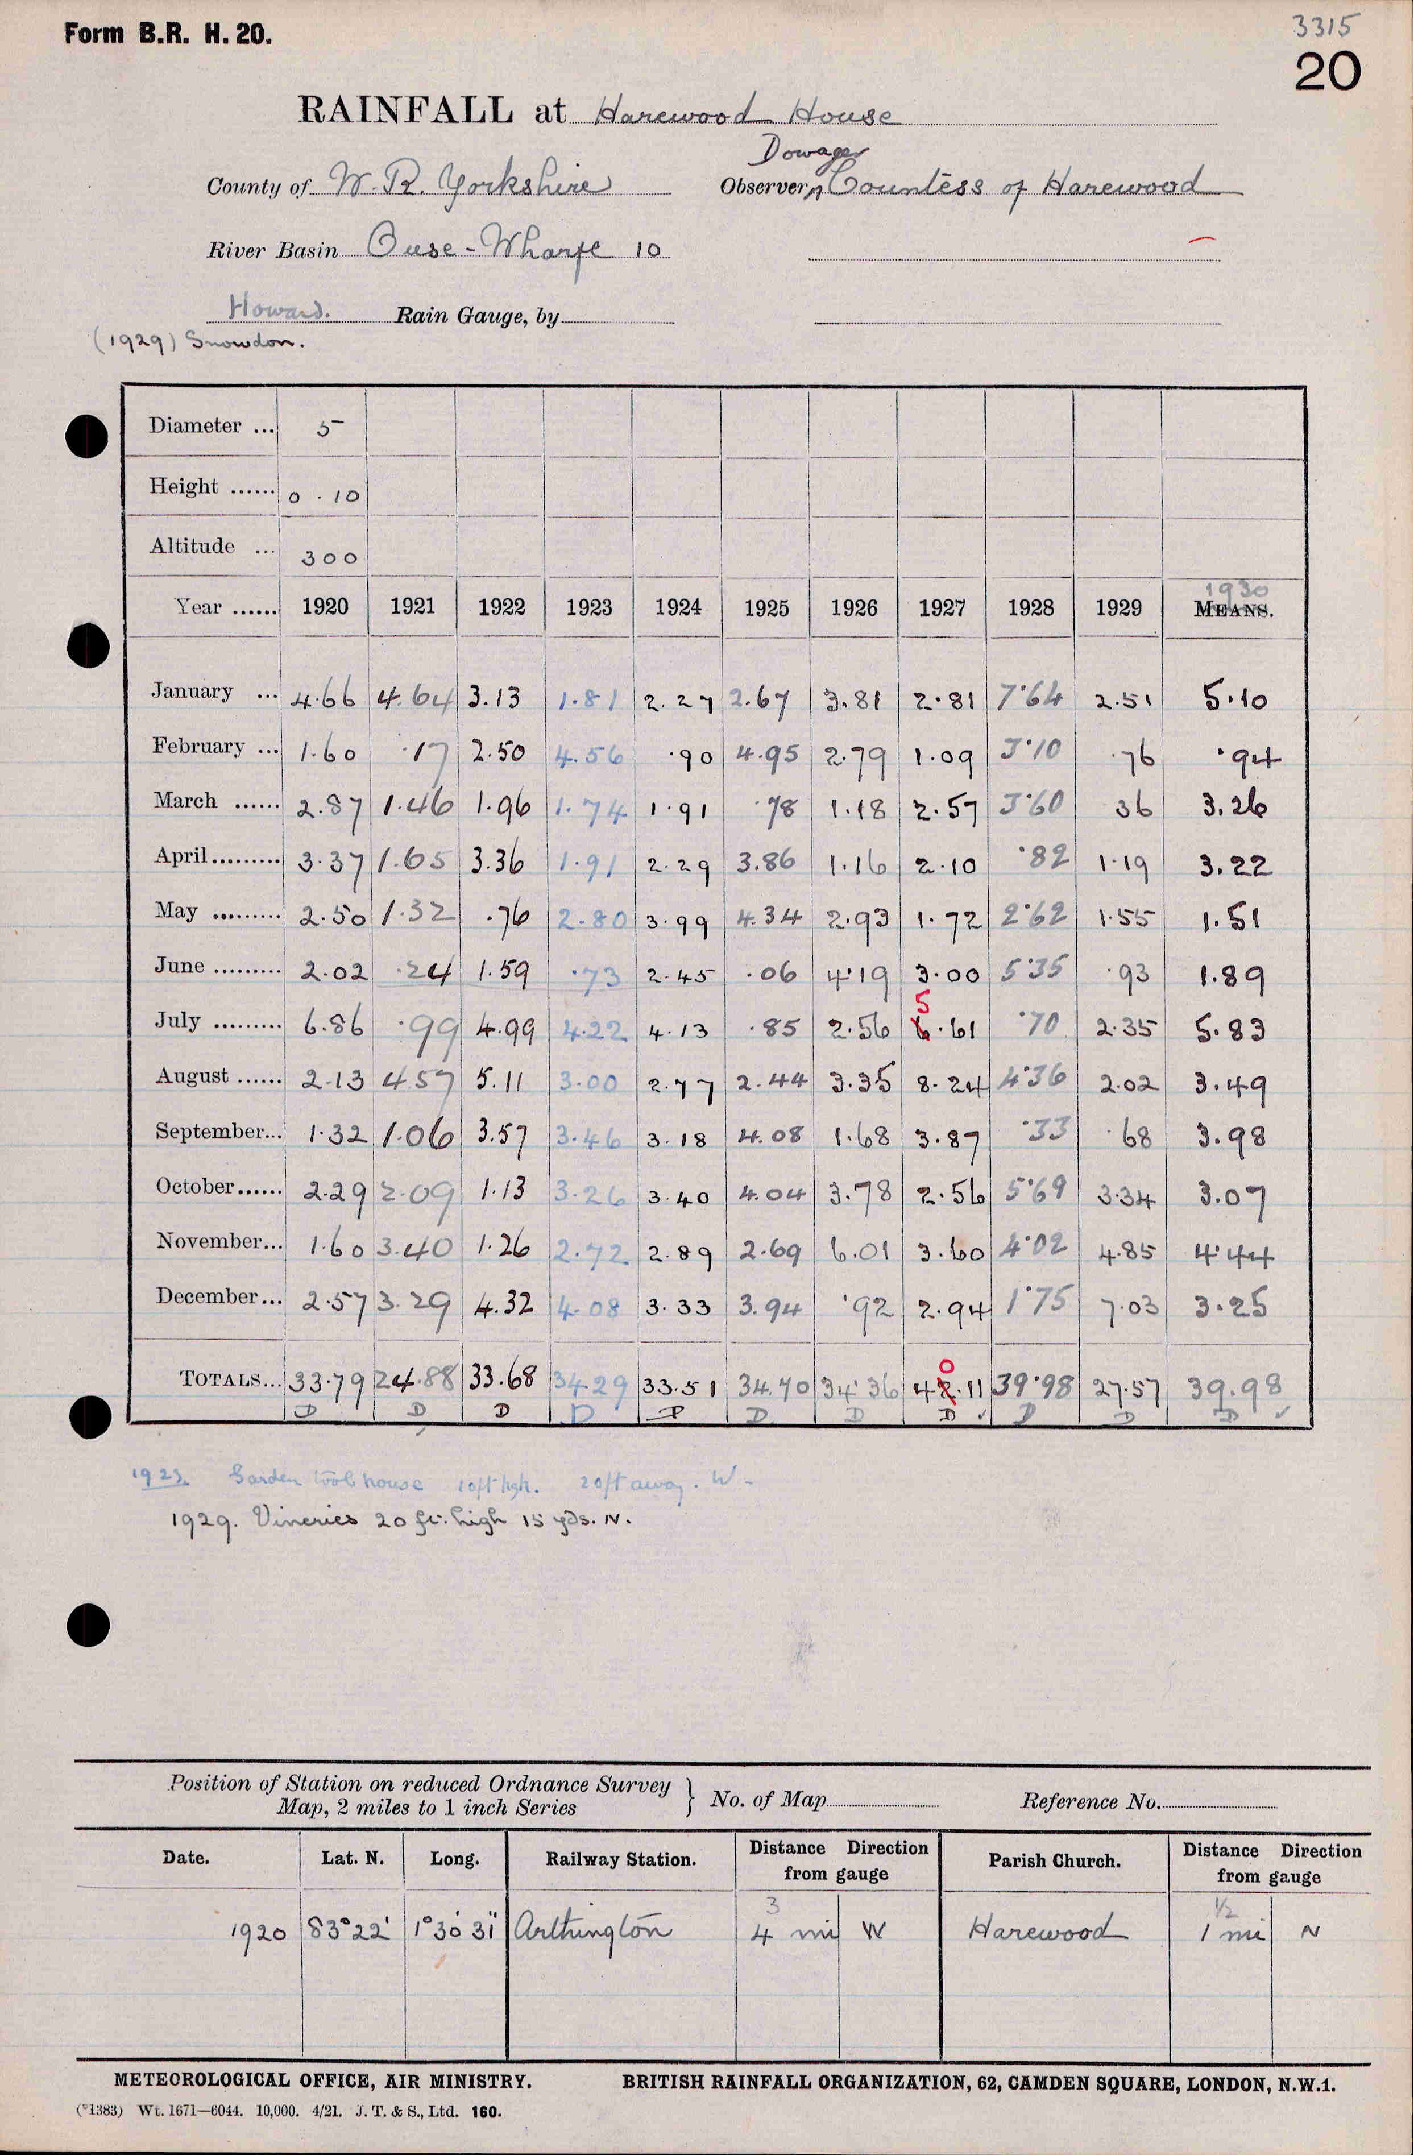 Form B.R. H. 20.
3315
20
RAINFALL at Harewood House
Dowager
County of W. R. Yorkshire Observer, Countess of Harewood
River Basin Ouse - Wharfe 10
Howard. Rain Gauge, by
(1929) Snowdon.
Diameter ... 5
Height ...... 0 . 10
Altitude ... 300
1930
Year ...... 1920 1921 1922 1923 1924 1925 1926 1927 1928 1929 MEANS.
January ... 4.66 4.64 3.13 1.81 2.27 2.67 3.81 2.81 7.64 2.51 5.10
February ... 1.60 .17 2.50 4.56 .90 4.95 2.79 1.09 3.10 .76 .94
March ...... 2.87 1.46 1.96 1.74 1.91 .78 1.18 2.57 3.60 36 3.26
April......... 3.37 1.65 3.36 1.91 2.29 3.86 1.16 2.10 .82 1.19 3.22
May ......... 2.50 1.32 .76 2.80 3.99 4.34 2.93 1.72 2.62 1.55 1.51
June ......... 2.02 .24 1.59 .73 2.45 .06 4.19 3.00 5.35 .93 1.89
5
July ......... 6.86 .99 4.99 4.22 4.13 .85 2.56 6.61 .70 2.35 5.83
August ...... 2.13 4.57 5.11 3.00 2.77 2.44 3.35 8.24 4.36 2.02 3.49
September... 1.32 1.06 3.57 3.46 3.18 4.08 1.68 3.87 .33 .68 3.98
October...... 2.29 2.09 1.13 3.26 3.40 4.04 3.78 2.56 5.69 3.34 3.07
November... 1.60 3.40 1.26 2.72 2.89 2.69 6.01 3.60 4.02 4.85 4.44
December... 2.57 3.29 4.32 4.08 3.33 3.94 .92 2.94 1.75 7.03 3.25
0
TOTALS... 33.79 24.88 33.68 34.29 33.51 34.70 34.36 42.11 39.98 27.57 39.98
D D D D D D D D ✓ D D D ✓
1923. Garden tool house 10ft hgh. 20ft away. W -
1929. Vineries 20 ft. high 15 yds. N.
Position of Station on reduced Ordnance Survey
Map, 2 miles to 1 inch Series } No. of Map Reference No.
Date. Lat. N. Long. Railway Station. Distance Direction from gauge Parish Church. Distance Direction from gauge
3 1/2
1920 53°22' 1°30'31" Arthington 4 mi W Harewood 1 mi N
METEOROLOGICAL OFFICE, AIR MINISTRY. BRITISH RAINFALL ORGANIZATION, 62, CAMDEN SQUARE, LONDON, N.W.1.
(*1383) Wt. 1671—6044. 10,000. 4/21. J. T. & S., Ltd. 160.